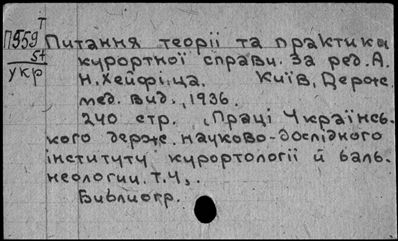 Т
П959 Питання теорії та практики
5+
укр
курортної справи. За ред. А.
Н. Хейфіца. Київ, Держ.
мед. вид., 1936.
240 стр. „Праці Українсь-
кого держ. науково-дослідного
інституту курортології й баль-
неологии. т. 4„.
Библиогр.